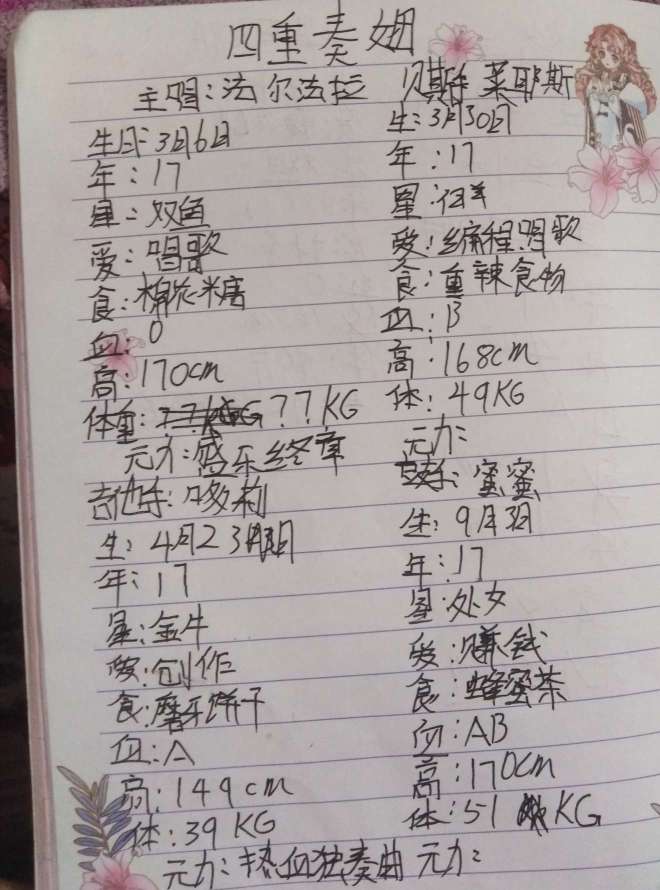 四重奏姐
主唱：法尔法拉
生日：3月6日
年：17
星：双鱼
爱：唱歌
食：棉花糖
血：O
高：170cm
体重：??KG
元力：盛乐终章
贝斯手 莱耶斯
生：3月30日
年：17
星：白羊
爱：编程唱歌
食：重辣食物
血：B
高：168cm
体：49KG
元力：
吉他手：哆莉
生：4月23日
年：17
星：金牛
爱：创作
食：磨牙饼干
血：A
高：149cm
体：39KG
元力：热血独奏曲
蜜蜜
生：9月3日
年：17
星：处女
爱：赚钱
食：蜂蜜茶
血：AB
高：170cm
体：51KG
元力：